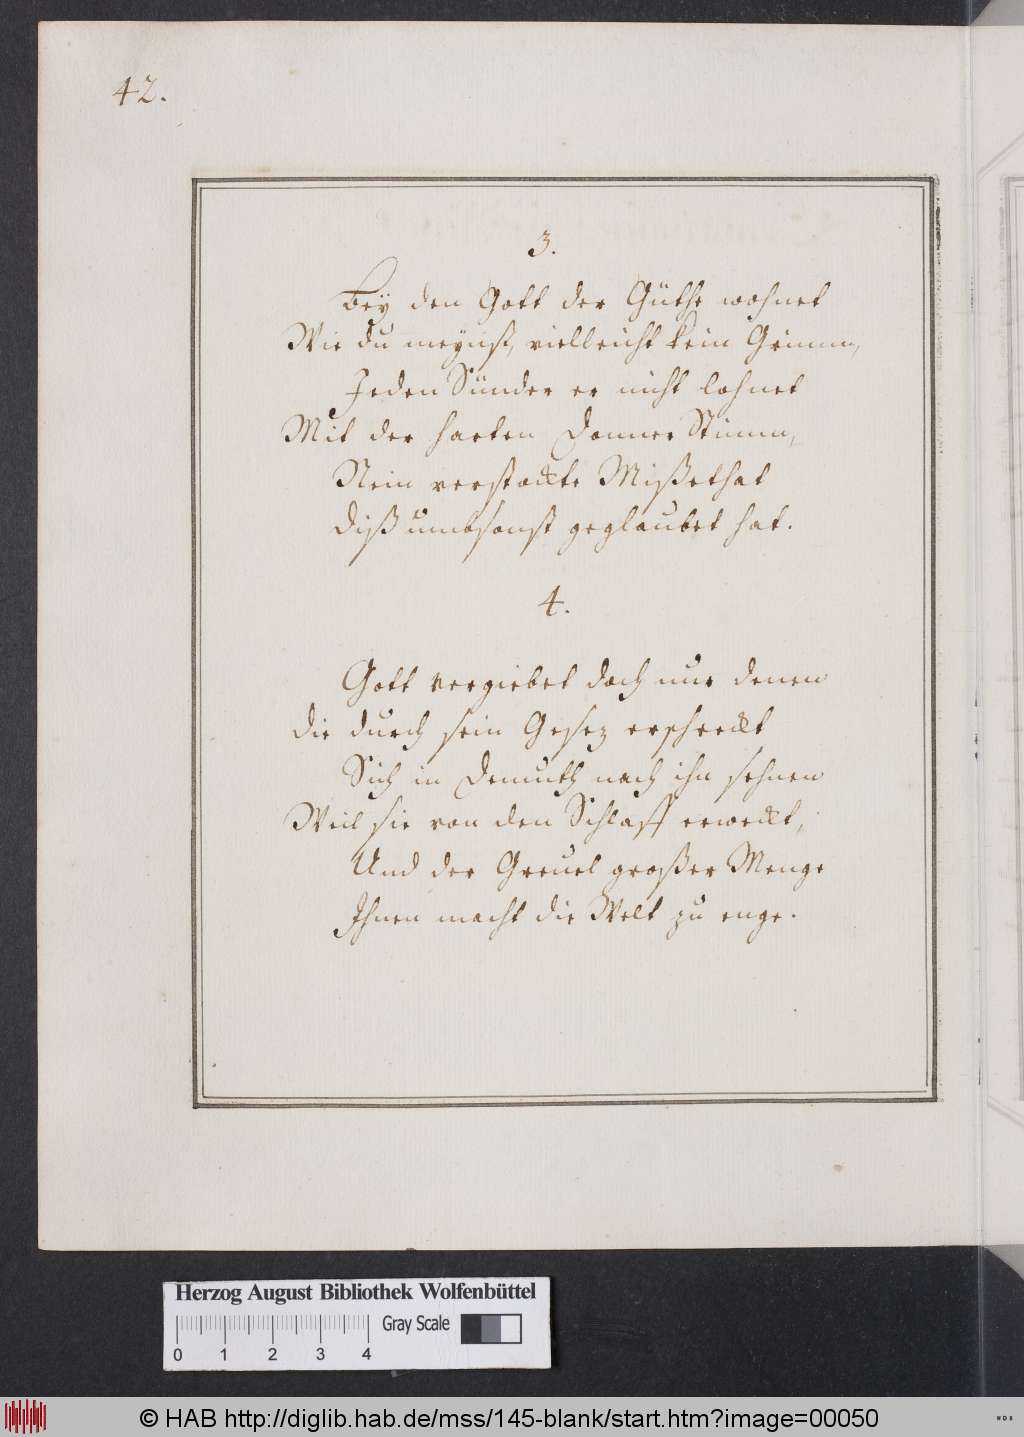 42.
3.
Bey den Gott der Güthe wohnet
Wie du meynst, vielleicht kein Grimm,
Jeden Sünder er nicht lohnet
Mit der harten Donner Stimm,
Nein verstockte Mißethat
Diß umbsonst geglaubet hat.
4.
Gott vergiebet doch nur denen
Die durch sein Gesez erschreckt
Sich in Demuth nach ihn sehnen
Weil sie von den Schlaff erweckt,
Und der Greuel großer Menge
Ihnen macht die Welt zu enge.
Herzog August Bibliothek Wolfenbüttel
Gray Scale
0 1 2 3 4
© HAB http://diglib.hab.de/mss/145-blank/start.htm?image=00050